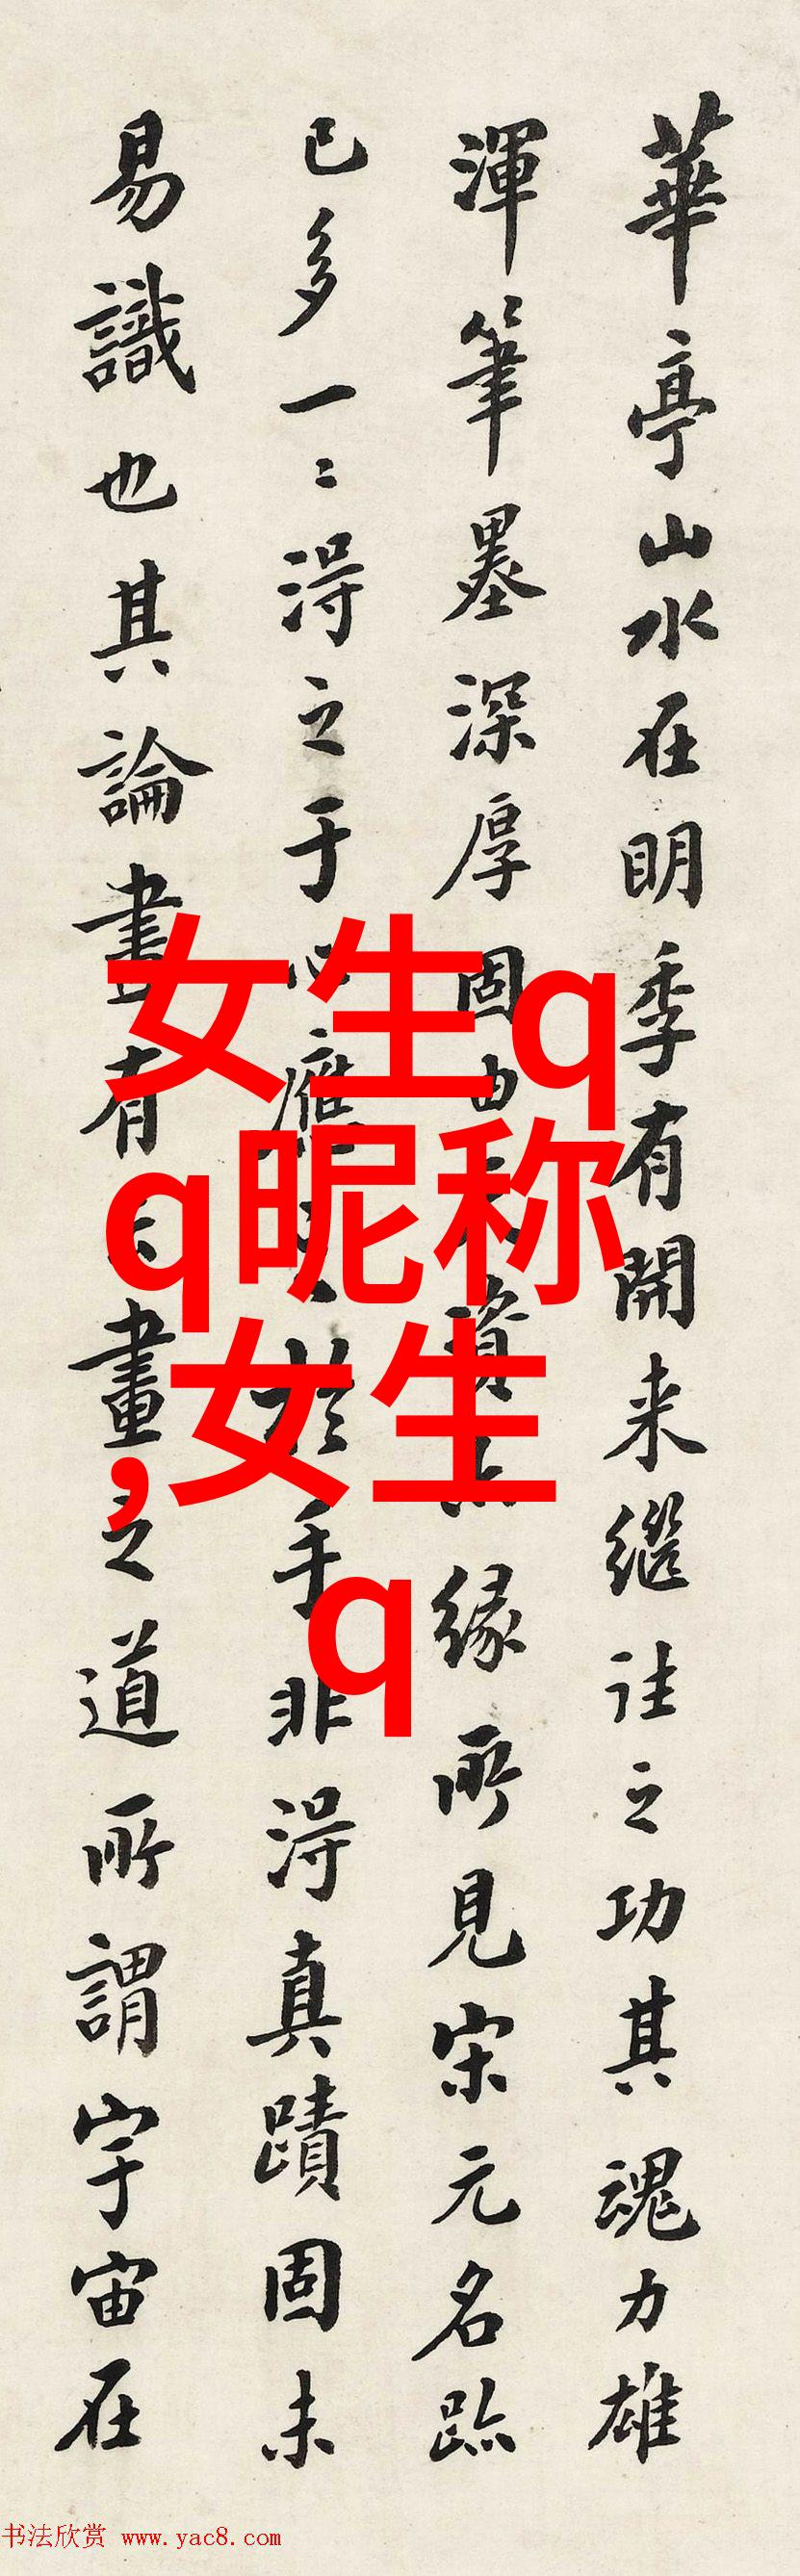 華亭山水在明季有開来继往之功其魂力雄
渾筆墨深厚固由天資亦緣所見宋元名跡
已多一二得之于心應之於手非得真蹟固未
易識也其論畫有云畫之道所謂宇宙在
女生q
q昵称
,女生
q
书法欣赏 www.yac8.com